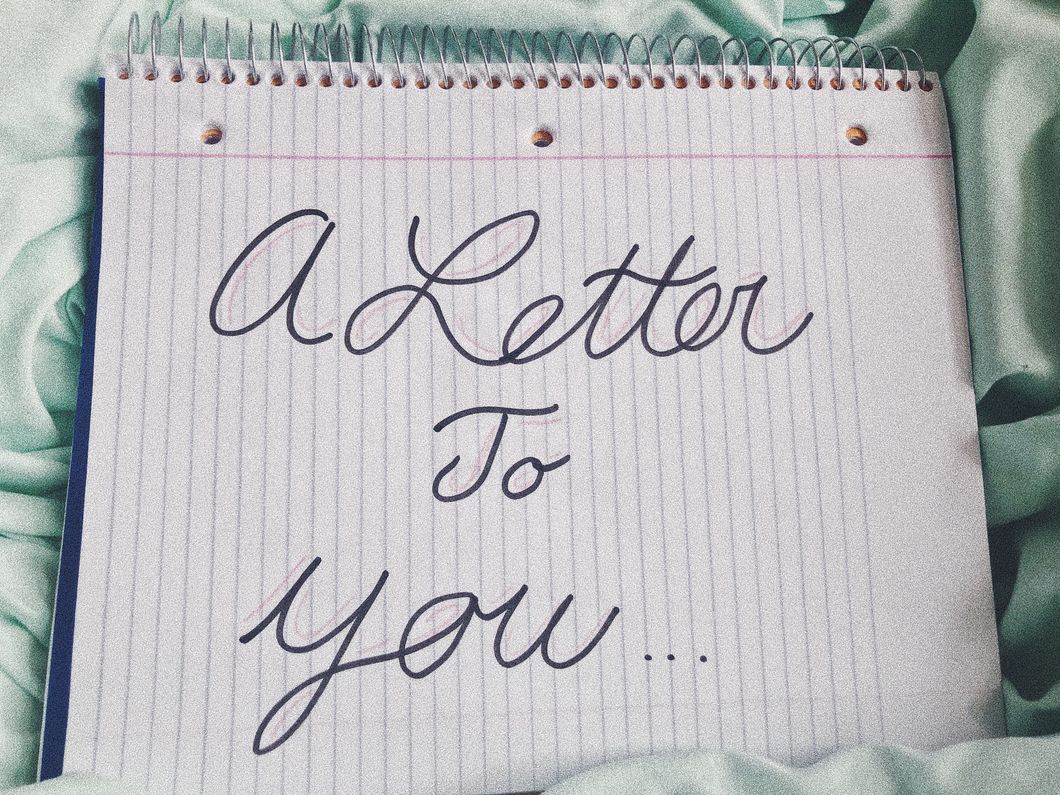 A Letter
To
you...